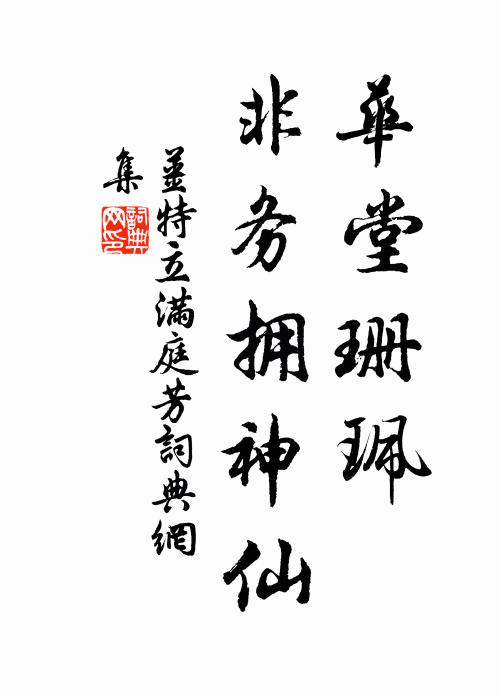 華堂珊珮
非务拥神仙
姜特立滿庭芳詞典網
集
詞典网印